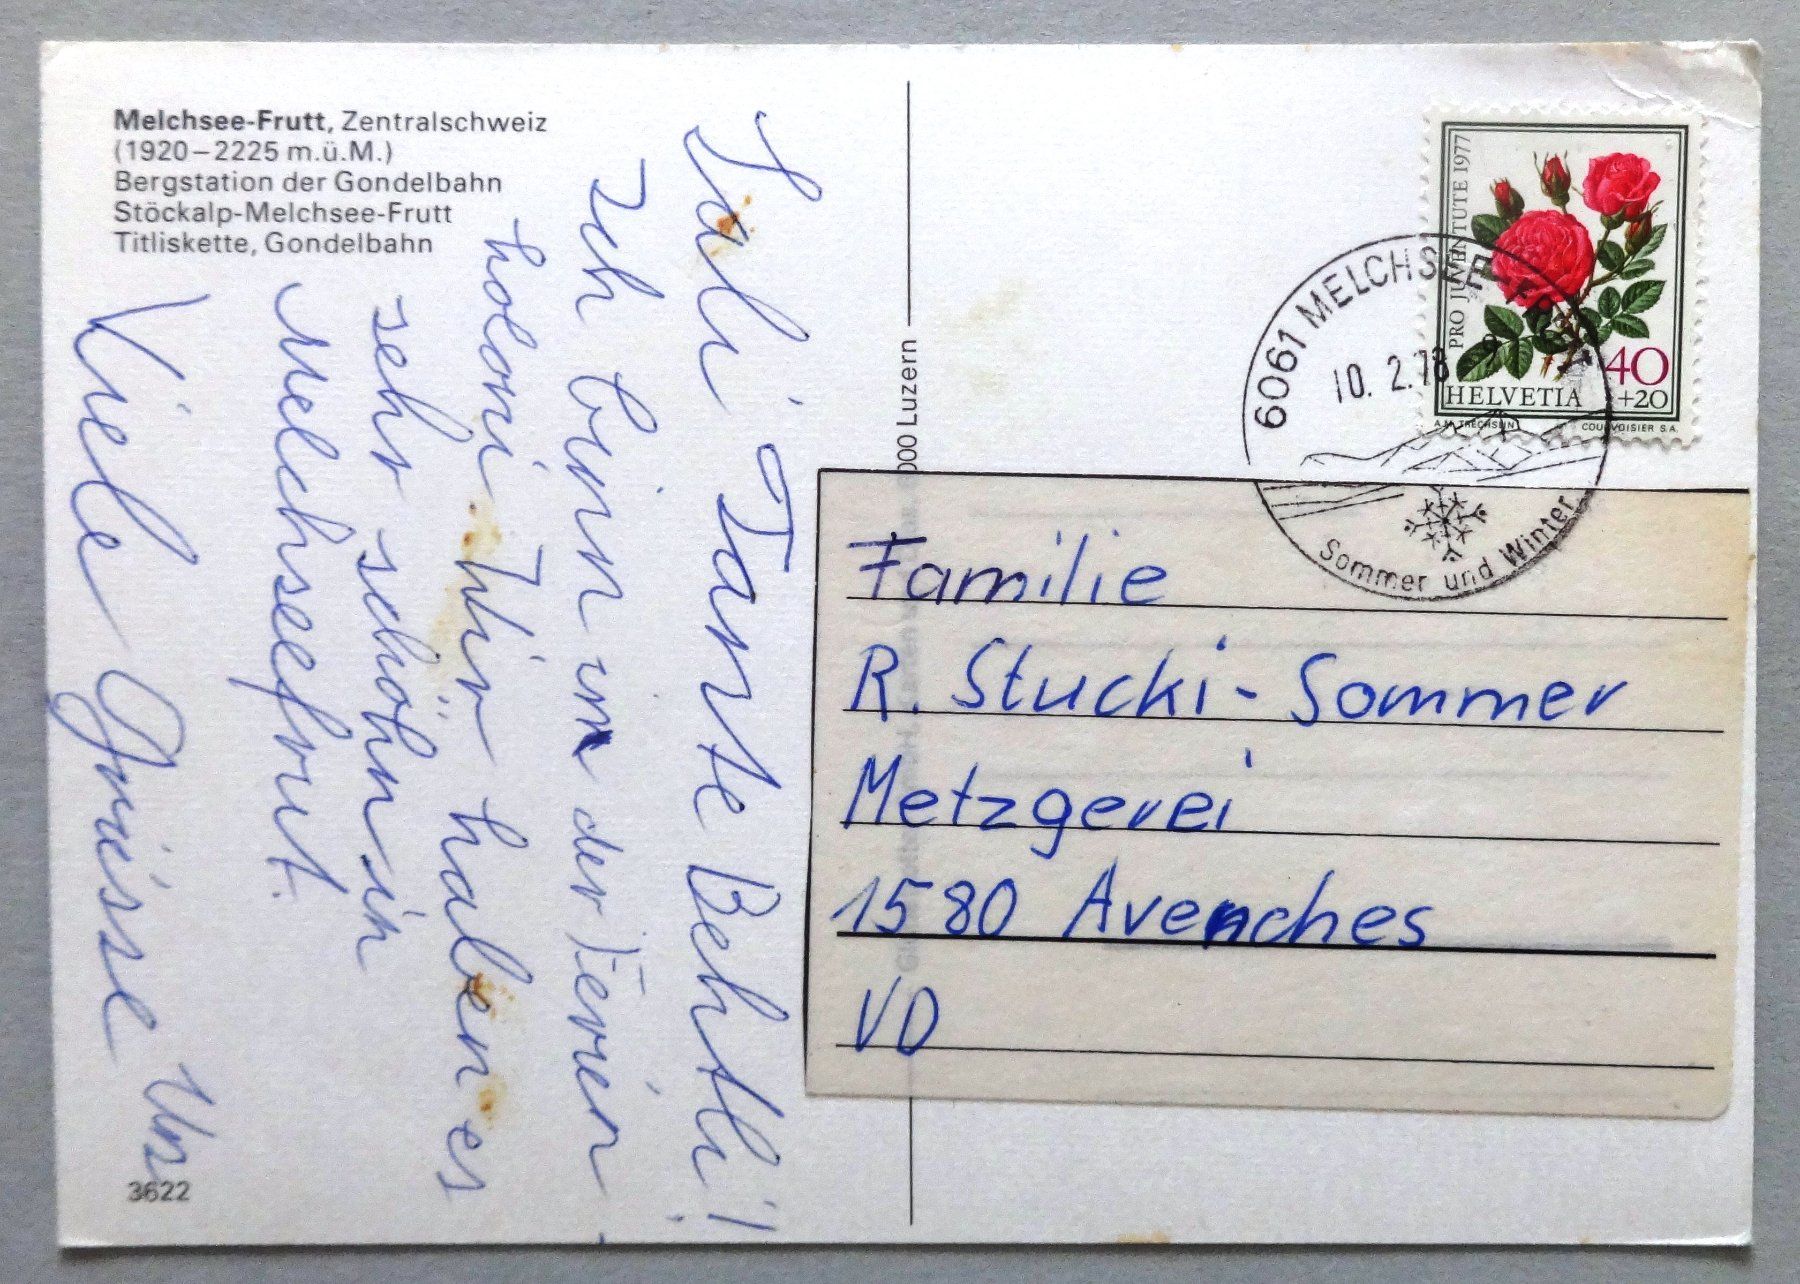 Melchsee-Frutt, Zentralschweiz
(1920–2225 m.ü.M.)
Bergstation der Gondelbahn
Stöckalp-Melchsee-Frutt
Titliskette, Gondelbahn
Sali Tante Bethli!
Ich binn im der Ferien
koloni Wir haben es
sehr schöhn in
Melchseefrut.
Viele Grüsse Urs
3622
000 Luzern
PRO JUVENTUTE 1977
40
+20
HELVETIA
COURVOISIER S.A.
6061 MELCHSEE-FRUTT
10. 2.78
Sommer und Winter
Familie
R. Stucki-Sommer
Metzgerei
1580 Avenches
VD